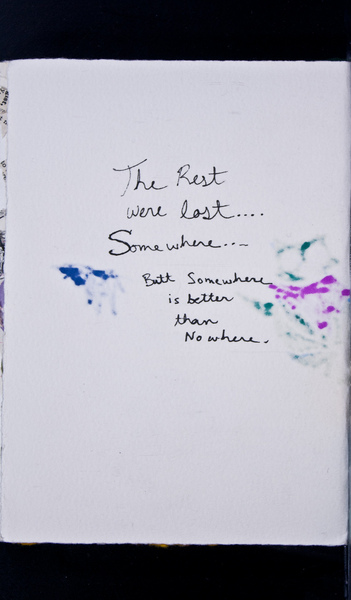 The Rest
were lost....
Somewhere...
Butt Somewhere
is better
than
Nowhere.